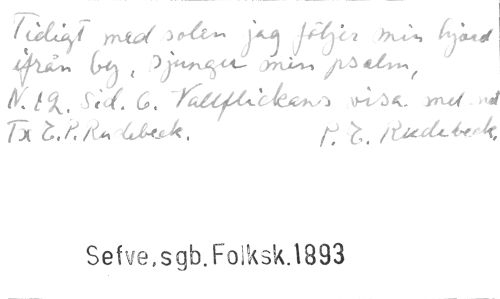 Tidigt med solen jag följer min hjord
ifrån by, sjunger min psalm,
N. 12. Sid. 6. Vallflickans visa med not
Tx E. P. Rudebeck. P. E. Rudebeck.
Sefve,sgb.Folksk.1893